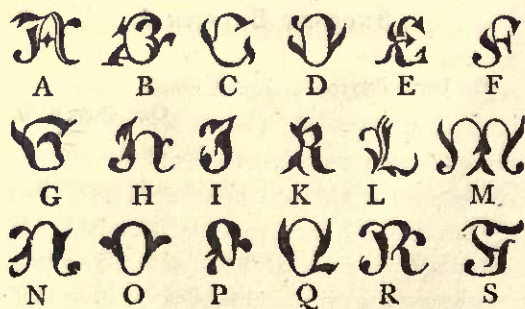 A B C D E F
A B C D E F
G H I K L M
G H I K L M
N O P Q R S
N O P Q R S